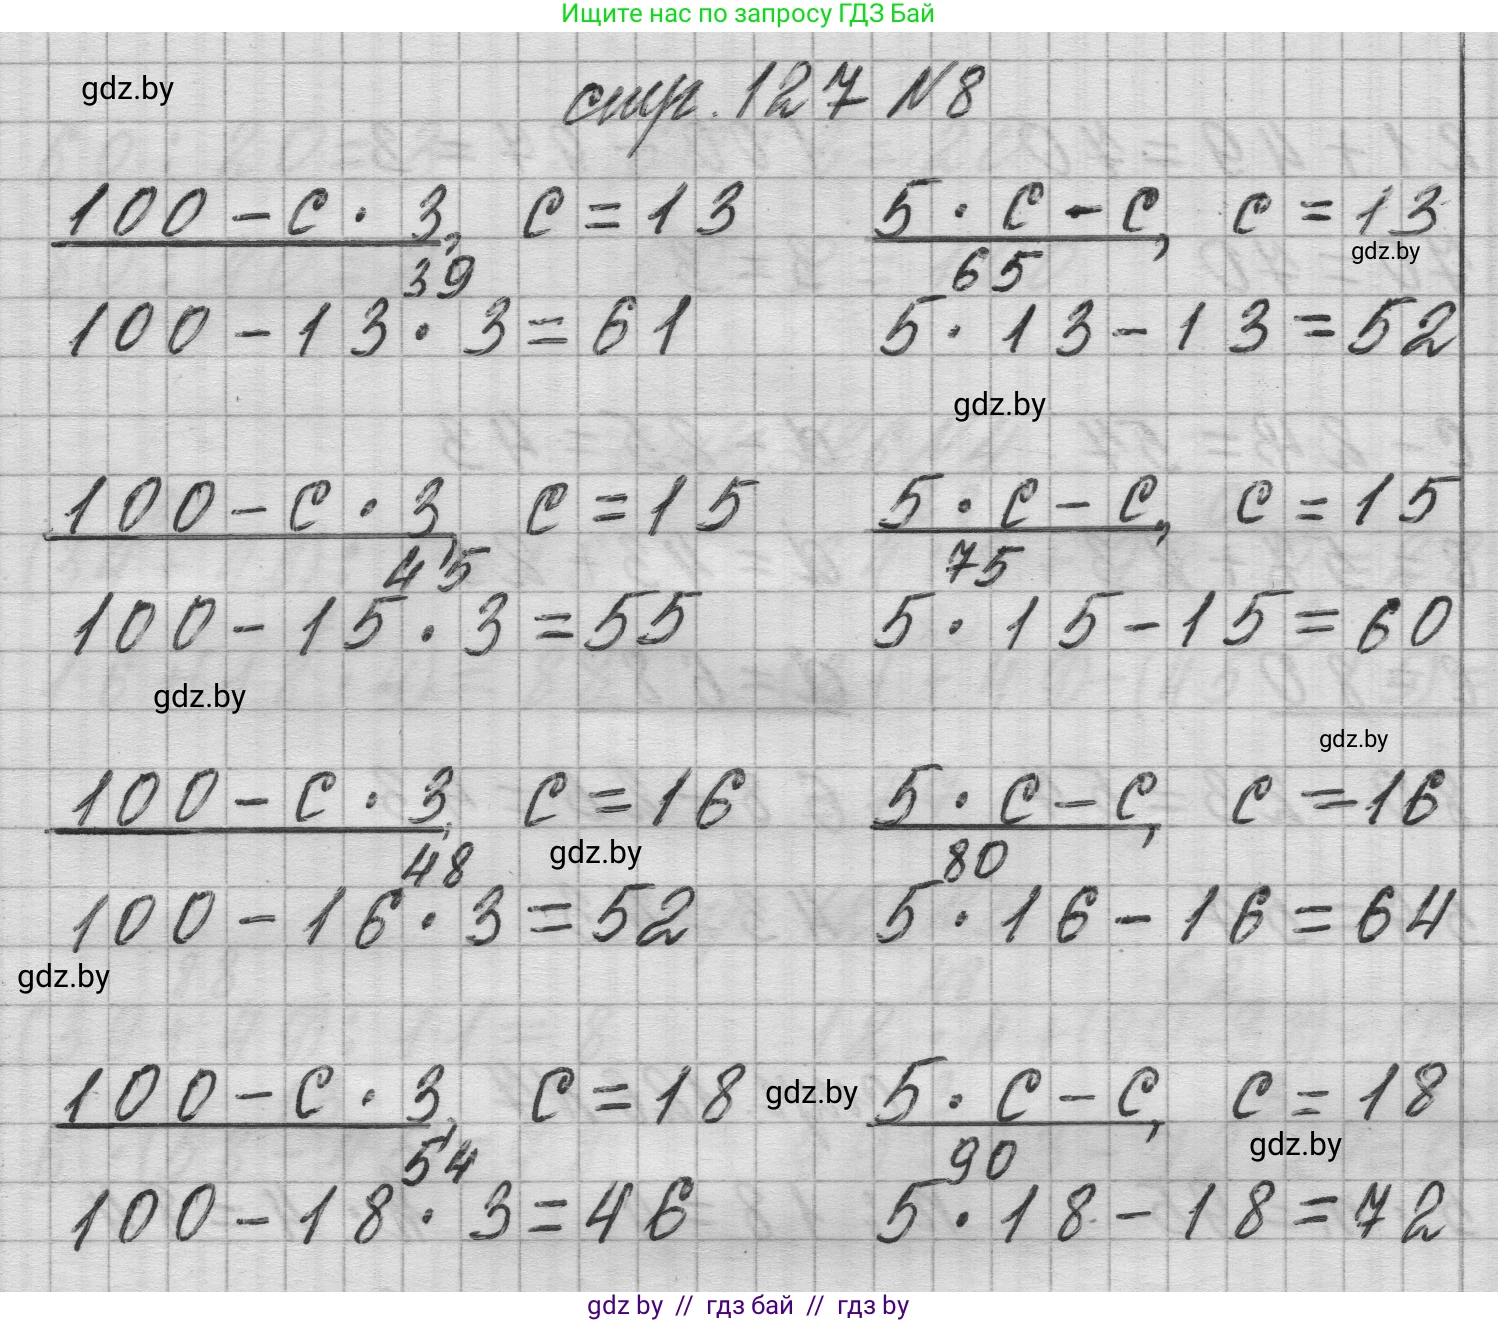 Ищите нас по запросу ГДЗ Бай
gdz.by
стр. 127 №8
100 - c · 3, c = 13 5 · c - c, c = 13
gdz.by
39 65
100 - 13 · 3 = 61 5 · 13 - 13 = 52
gdz.by
100 - c · 3, c = 15 5 · c - c, c = 15
45 75
100 - 15 · 3 = 55 5 · 15 - 15 = 60
gdz.by
gdz.by
100 - c · 3, c = 16 5 · c - c, c = 16
48 gdz.by 80
100 - 16 · 3 = 52 5 · 16 - 16 = 64
gdz.by
100 - c · 3, c = 18 gdz.by 5 · c - c, c = 18
54 90 gdz.by
100 - 18 · 3 = 46 5 · 18 - 18 = 72
gdz by // гдз бай // гдз by